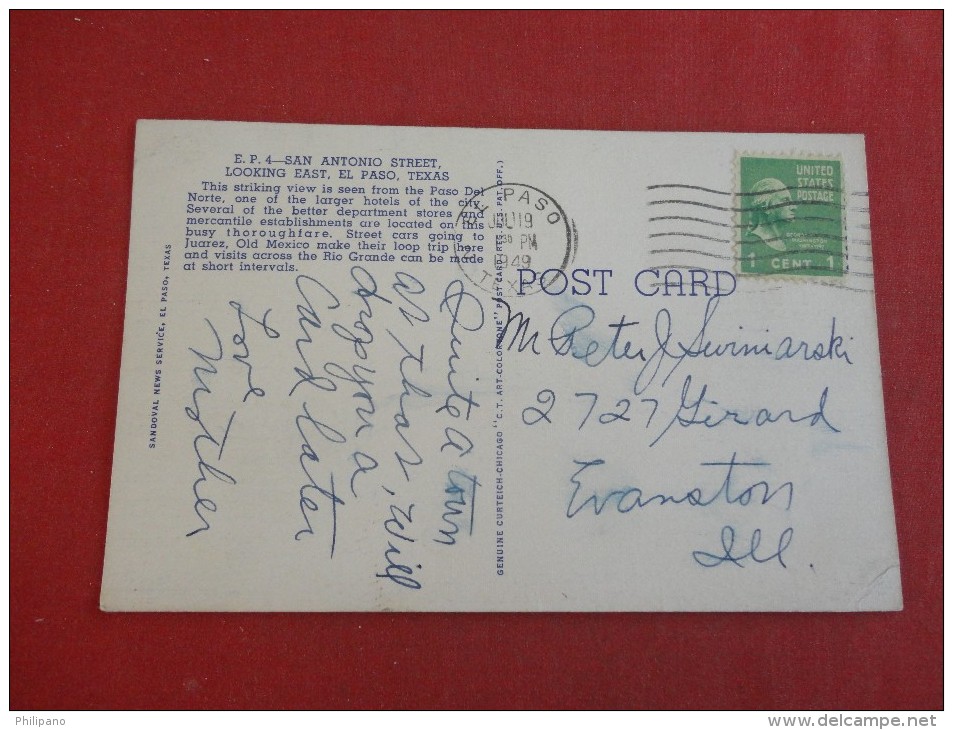 E. P. 4—SAN ANTONIO STREET,
LOOKING EAST, EL PASO, TEXAS
This striking view is seen from the Paso Del
Norte, one of the larger hotels of the city.
Several of the better department stores and
mercantile establishments are located on this
busy thoroughfare. Street cars going to
Juarez, Old Mexico make their loop trip here
and visits across the Rio Grande can be made
at short intervals.
Quite a town
at that, will
drop you a
Card later
Love
Mother
SANDOVAL NEWS SERVICE, EL PASO, TEXAS
GENUINE CURTEICH-CHICAGO "C.T. ART-COLORTONE" POST CARD (REG. U.S. PAT. OFF.)
PASO
JUL 19
30 PM
1949
TEXAS
UNITED
STATES
POSTAGE
1 CENT 1
POST CARD
Mr Peter J Swiniarski
2727 Girard
Evanston
Ill.
Philipano
delcampe.net